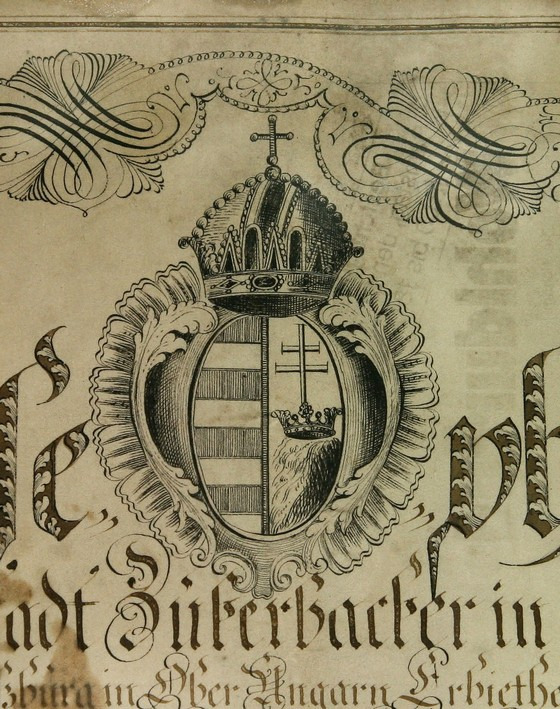 Se yh
adt Zukerbacker in
sburg in Ober Ungarn Erbiethe